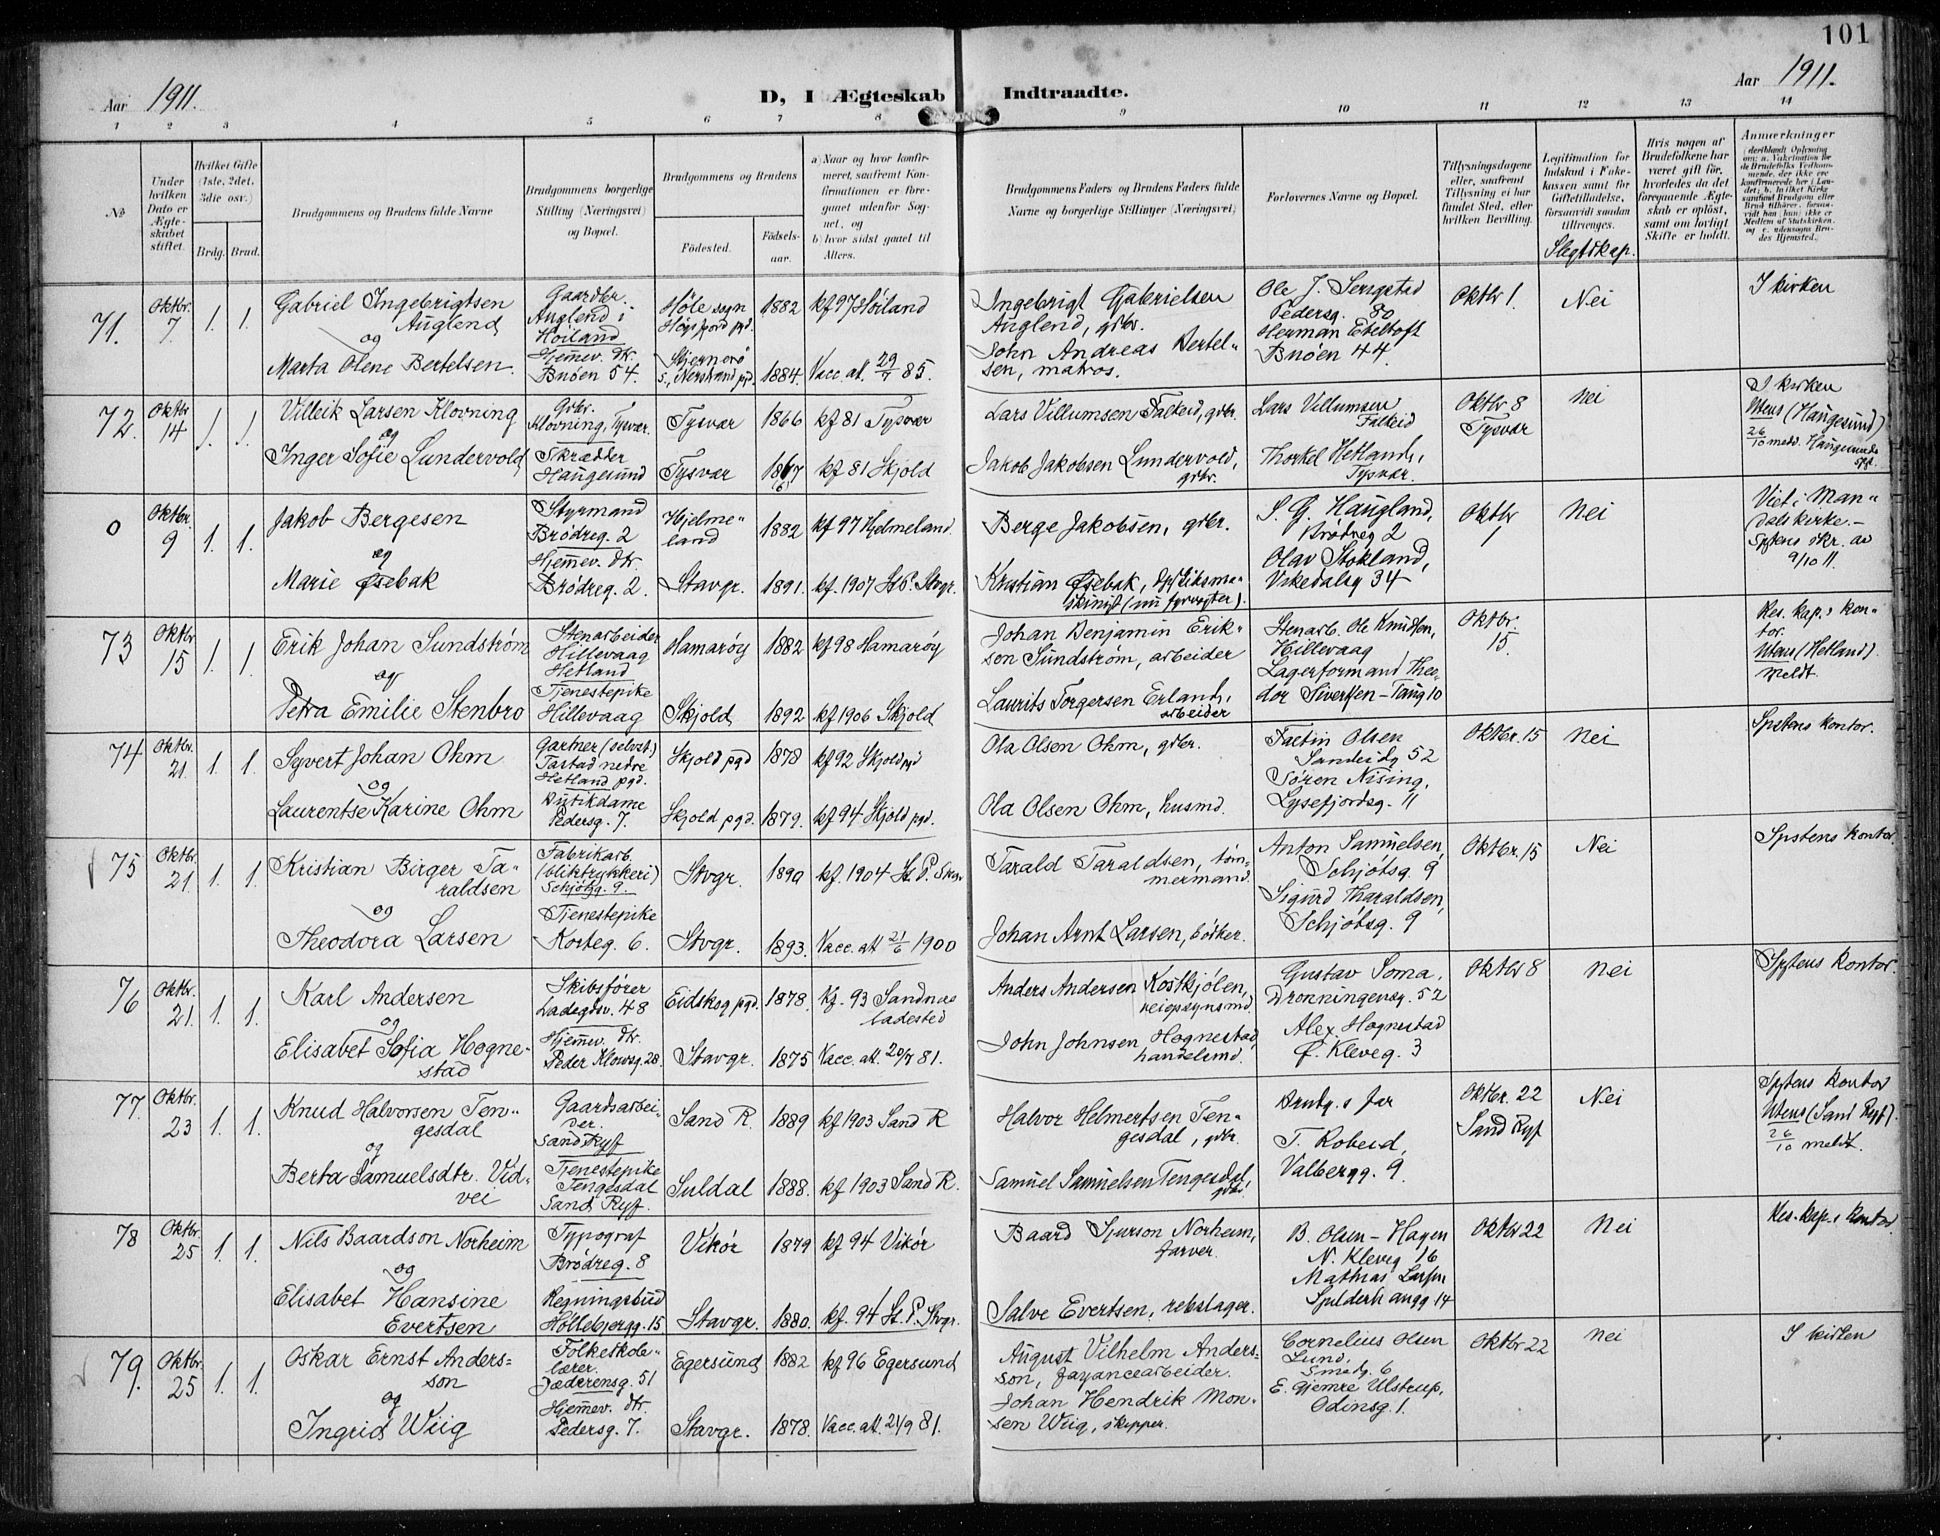 101
Aar 1911.
D, I Ægteskab Indtraadte.
Aar 1911.
1 2 3 4 5 6 7 8 9 10 11 12 13 14
No
Under hvilken Dato er Ægteskabet stiftet.
Hvilket Gifte (1ste, 2det, 3die osv.)
Brdg. Brud.
Brudgommens og Brudens fulde Navne
Brudgommens borgerlige Stilling (Næringsvei) og Bopæl.
Brudgommens og Brudens
Fødested.
Fødselsaar.
a) Naar og hvor konfirmeret, saafremt Konfirmationen er foregaaet udenfor Sognet, og
b) hvor sidst gaaet til Alters.
Brudgommens Faders og Brudens Faders fulde Navne og borgerlige Stillinger (Næringsvei)
Forlovernes Navne og Bopæl.
Tillysningsdagene eller, saafremt Tillysning ei har fundet Sted, efter hvilken Bevilling.
Legitimation for Indskud i Enkekassen samt for Giftetilladelse, forsaavidt saadan tiltrænges.
Slegtskap.
Hvis nogen af Brudefolkene har været gift før, hvorledes da det foregaaende Ægteskab er opløst, samt om lovligt Skifte er holdt.
Anmærkninger
71. Oktbr. 7 1. 1.
Gabriel Ingebrigtsen Auglend
og
Marta Olene Bertelsen.
Gaardbr. Auglend i Høiland
Hjemev. dtr. Buøen 54.
Høle sogn Høgsfjord pgd. 1882 kf 97 Høiland
Stjernerø s., Nerstrand pgd. 1884. Vacc. at. 29/7 85.
Ingebrigt Gabrielsen Auglend, gdbr.
John Andreas Bertelsen, matros.
Ole J. Sengstad Pedersg. 80
Herman Ebeltoft Buøen 44
Oktbr 1. Nei I kirken
72. Oktbr 14 1. 1.
Villeik Larsen Klovning
og
Inger Sofie Lundervold
Gdbr. Klovning, Tysvær.
Skrædder Haugesund
Tysvær 1866 kf 81 Tysvær
Tysvær 1867 kf 81 Skjold
Lars Villumsen Falkeid, gdbr.
Jakob Jakobsen Lundervold, gdbr.
Lars Villumsen Falkeid
Thorkel Hetland, Tysvær.
Oktbr 8 Tysvær
Nei
I kirken Utens (Haugesund) 26/10 medd. Haugesunds
0 Oktbr. 9 1. 1.
Jakob Bergesen
og
Marie Øsebak
Styrmand Brødreg. 2
Hjemev. dtr. Brødreg. 2.
Hjelmeland 1882 kf 97 Hjelmeland
Stavgr. 1891. kf. 1907 St. P. Stvgr.
Berge Jakobsen, gdbr.
Kristian Øsebak, (nu fyrvogter).
S. G. Haugland, Brødreg 2
Olav Stokland, Vikedalsg 34
Oktbr 1 Nei
Viet i Mandals kirke. - Spstens skr. av 9/10 11.
73 Oktbr 15 1. 1.
Erik Johan Sundstrøm
og
Petra Emilie Stenbro
Stenarbeider Hillevaag Hetland
Tjenestepike Hillevaag
Hamarøy 1882 kf 98 Hamarøy
Skjold 1892 kf 1906 Skjold
Johan Benjamin Erikson Sundstrøm, arbeider
Laurits Torgersen Erland, arbeider
Stenarb. Ole Knudsen, Hillevaag
Lagerformand Theodor Sivertsen - Taug 10
Oktbr. 15.
Res. kap.s kontor. Utens (Hetland). meldt.
74 Oktbr. 21. 1. 1.
Syvert Johan Ohm
og
Laurentse Karine Ohm
Gartner (selvst.) Tastad nedre Hetland pgd.
Butikdame Pedersg. 7.
Skjold pgd 1878 kf 92 Skjold pgd
Skjold pgd. 1879. kf 94 Skjold pgd.
Ola Olsen Ohm, gdbr.
Ola Olsen Ohm, husmd.
Faltin Olsen Sandeidg 52
Søren Nising, Lysefjordsg. 11
Oktbr. 15 Nei Spstens kontor.
75 Oktbr. 21 1. 1.
Kristian Birger Taraldsen
og
Theodora Larsen
Fabrikarb. (bliktrykkeri) Schjøtsg. 9.
Tjenestepike Korteg. 6.
Stvgr. 1890 kf. 1904 St. P. Stvgr
Stvgr. 1893. Vacc. att 21/6 1900
Tarald Taraldsen, tømmermand.
Johan Arnt Larsen, bødker.
Anton Samuelsen, Schjøtsg. 9
Sigurd Tharaldsen, Schjøtsg. 9
Oktbr. 15 Nei Spstens kontor
76 Oktbr. 21. 1. 1.
Karl Andersen
og
Elisabet Sofia Hognestad
Skibsfører Ladegdsv. 48
Hjemev. dtr. Peder Klowsg. 28.
Eidskog pgd. 1878. kf. 93 Sandnes ladested
Stavgr. 1875 Vacc. att. 20/7 81.
Anders Andersen Kostkjølen, veiopsynsmd.
John Johnsen Hognestad, handelsmd.
Gustav Soma. Dronningensg. 52
Alex Hognestad Ø. Kleveg. 3
Oktbr 8 Nei Spstens kontor.
77. Oktbr. 23 1. 1.
Knud Halvorsen Tengesdal
og
Berta Samuelsdtr. Vidvei
Gaardsarbeider. Sand Ryf
Tjenestepike Tengesdal Sand Ryf.
Sand R. 1889 kf 1903 Sand R
Suldal 1888. kf 1903 Sand R.
Halvor Helmertsen Tengesdal, gdbr.
Samuel Samuelsen Tengesdal, gdbr.
Brudg.s far
T. Robeid, Valbergg. 9.
Oktbr. 22 Sand Ryf
Nei
Spstens kontor Utens (Sand Ryf). 26/10 meldt.
78 Oktbr. 25 1. 1.
Nils Baardson Norheim
og
Elisabet Hansine Evertsen
Typograf Brødreg. 8
Regningsbud Høllebjergg. 15
Vikør 1879 kf 94 Vikør
Stavgr. 1880. kf. 94 St. P. Stvgr.
Baard Sjurson Norheim, farver.
Salve Evertsen, rebslager.
B. Olsen-Hagen N. Kleveg 16
Mathias Larsen 14
Oktbr 22 Nei Res. kap.s kontor
79. Oktbr. 25 1. 1.
Oskar Ernst Andersson
og
Ingrid Wiig
Folkeskolelærer. Jæderensg. 51
Hjemev. dtr. Pedersg. 7.
Egersund 1882 kf 96 Egersund
Stavgr. 1878. Vacc. att. 21/9 81.
August Vilhelm Andersson, fayancearbeider.
Johan Hendrik Monsen Wiig, skipper.
Cornelius Olsen Lund, Smedg. 6
E. Gjemre Ulstrup, Odinsg. 1.
Oktbr 22 Nei I kirken